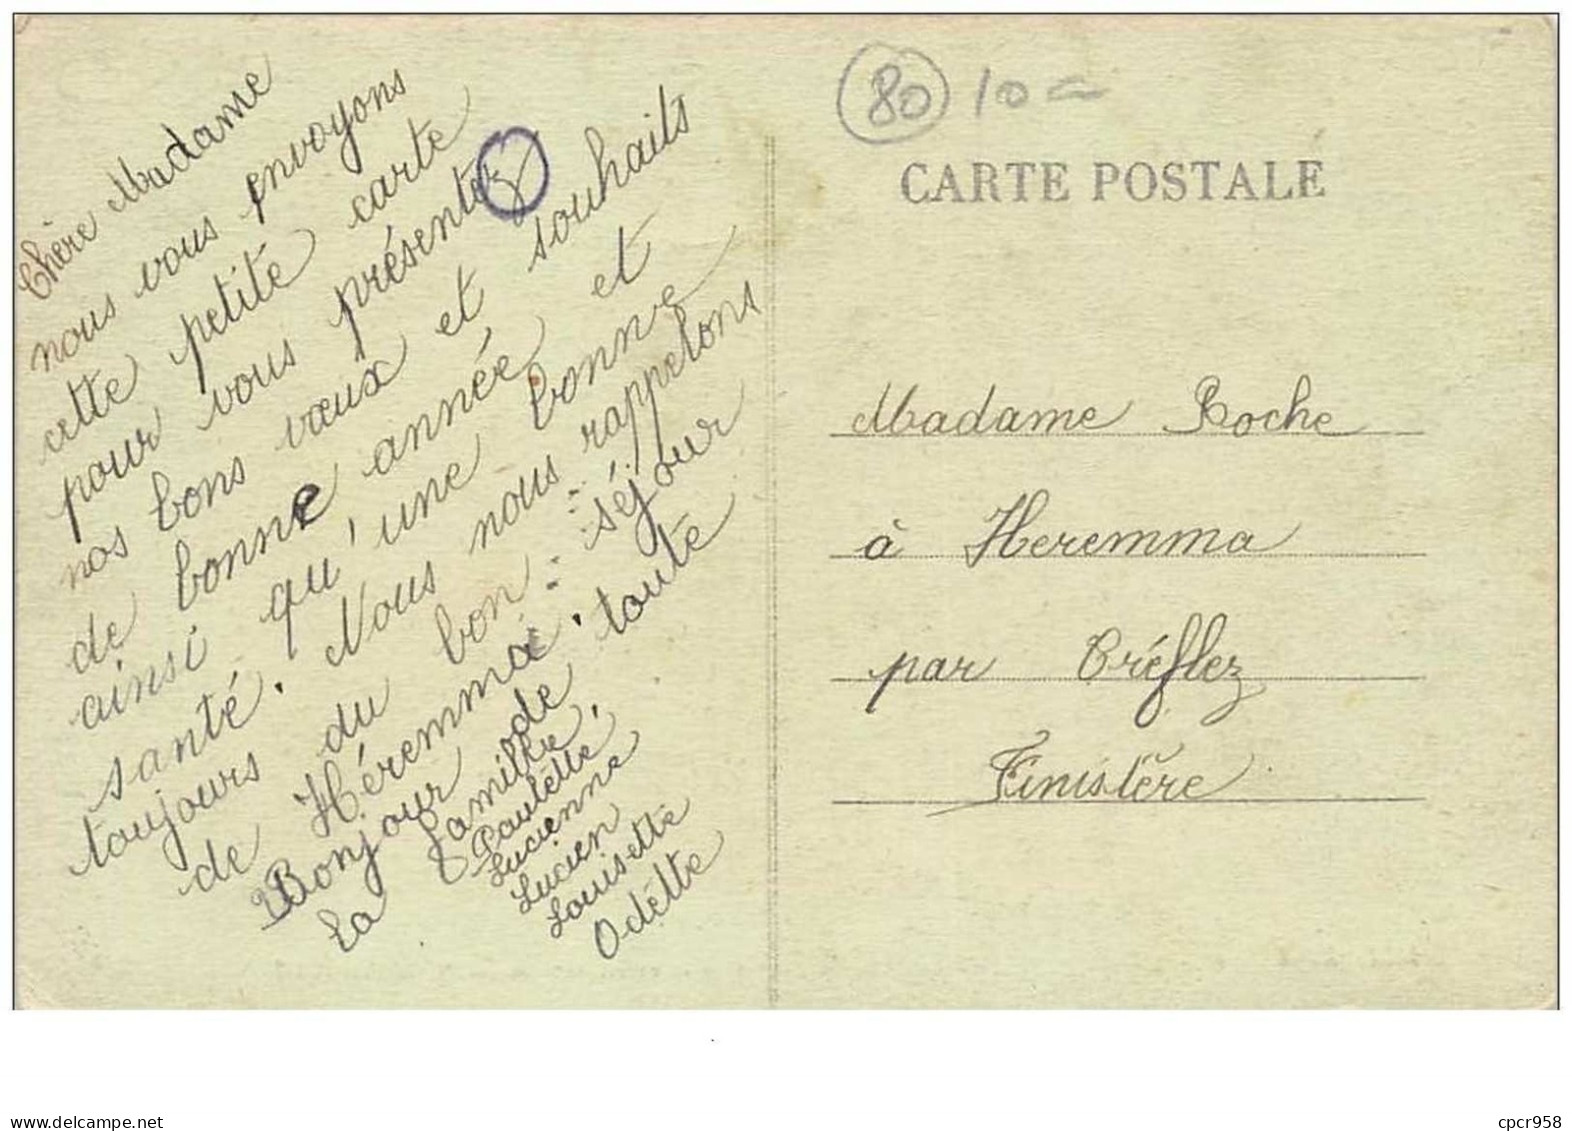 Chère Madame
nous vous envoyons
cette petite carte
pour vous présenter
nos bons vœux et souhaits
de bonne année et
ainsi qu'une bonne
santé. Nous nous rappelons
toujours du bon séjour
de Héremma. toute
Bonjour de
la famille,
Paulette,
Lucienne
Lucien
Louisette
Odette
80 10
CARTE POSTALE
Madame Roche
à Heremma
par Tréflez
Finistère
delcampe.net
cpcr958